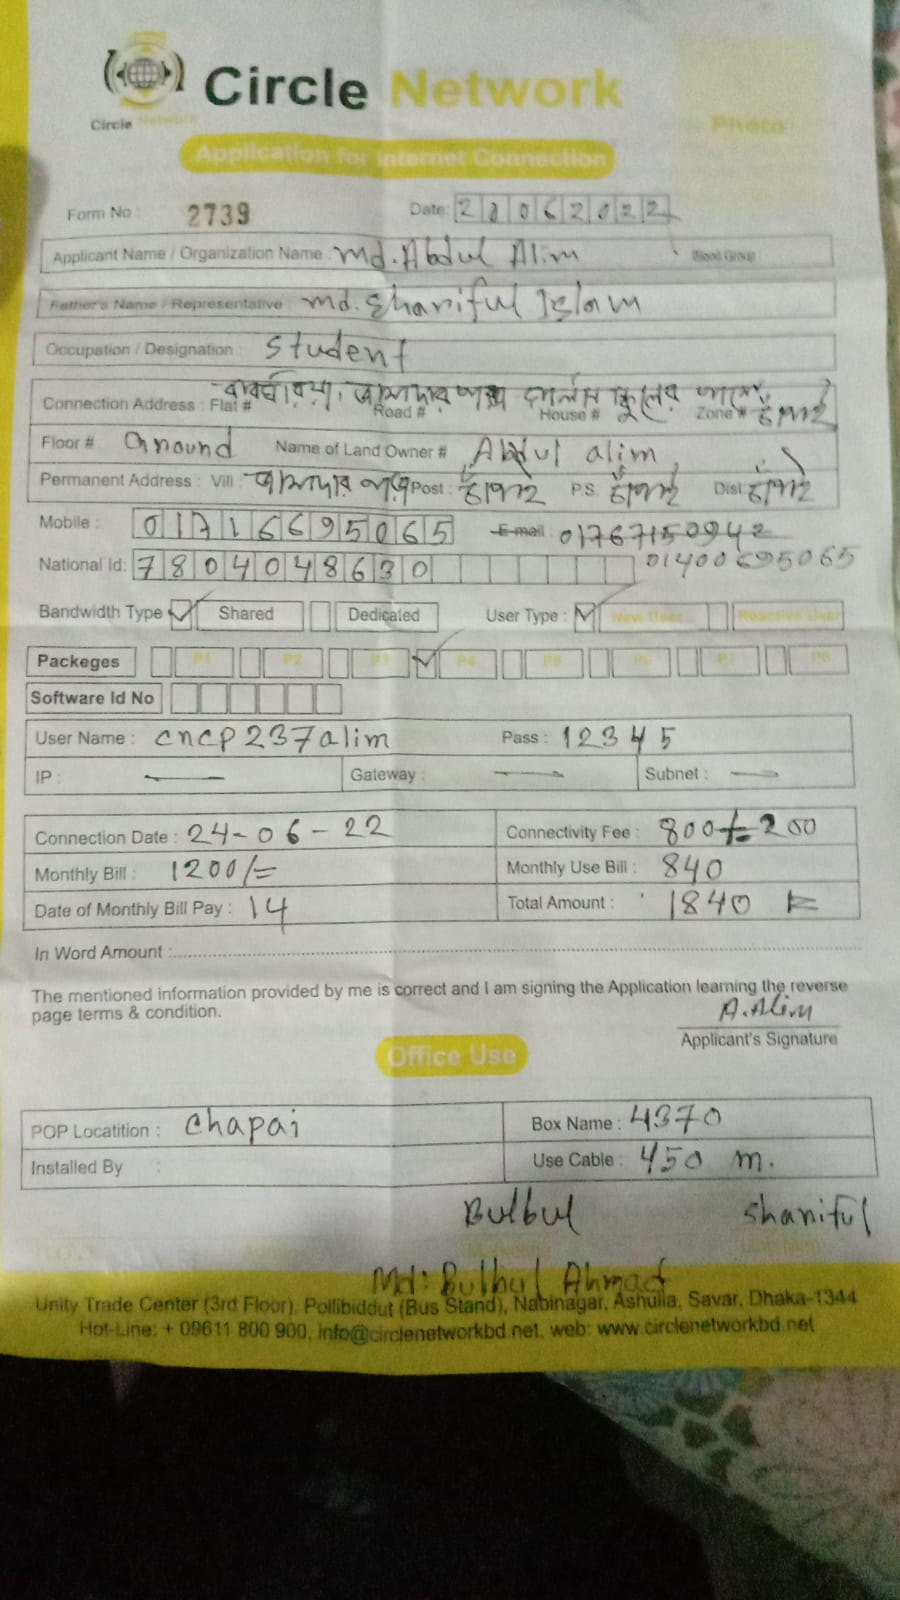 Circle Network
Circle Network
Photo
Application for Internet Connection
Form No : 2739 Date: 2 06 2022
Applicant Name / Organization Name : Md. Abdul Alim Blood Group
Father's Name / Representative : Md. Shariful Islam
Occupation / Designation : Student
Connection Address : Flat # Road # House # Zone #
Floor # Ground Name of Land Owner # Abdul alim
Permanent Address : Vill : Post : P.S. Dist:
Mobile : 01716695065 E-mail : 01767150942
National Id: 7804048630 01400695065
Bandwidth Type Shared Dedicated User Type : New User Reactive User
Packeges P1 P2 P3 P4 P5 P6 P7 P8
Software Id No
User Name : cncp237alim Pass : 12345
IP : — Gateway : — Subnet : —
Connection Date : 24-06-22 Connectivity Fee : 800/= 200
Monthly Bill : 1200/= Monthly Use Bill : 840
Date of Monthly Bill Pay : 14 Total Amount : 1840
In Word Amount :
The mentioned information provided by me is correct and I am signing the Application learning the reverse
page terms & condition.
A.Alim
Applicant's Signature
Office Use
POP Locatition : Chapai Box Name : 4370
Installed By : Use Cable : 450 m.
Bulbul Shariful
Md: Bulbul Ahmad
Unity Trade Center (3rd Floor), Pollibiddut (Bus Stand), Nabinagar, Ashulia, Savar, Dhaka-1344
Hot-Line: + 09611 800 900, info@circlenetworkbd.net, web: www.circlenetworkbd.net